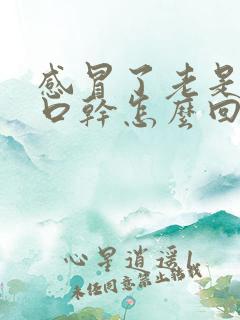 感冒了老是
口幹怎麼回
心星逍遥
未经同意禁止转载